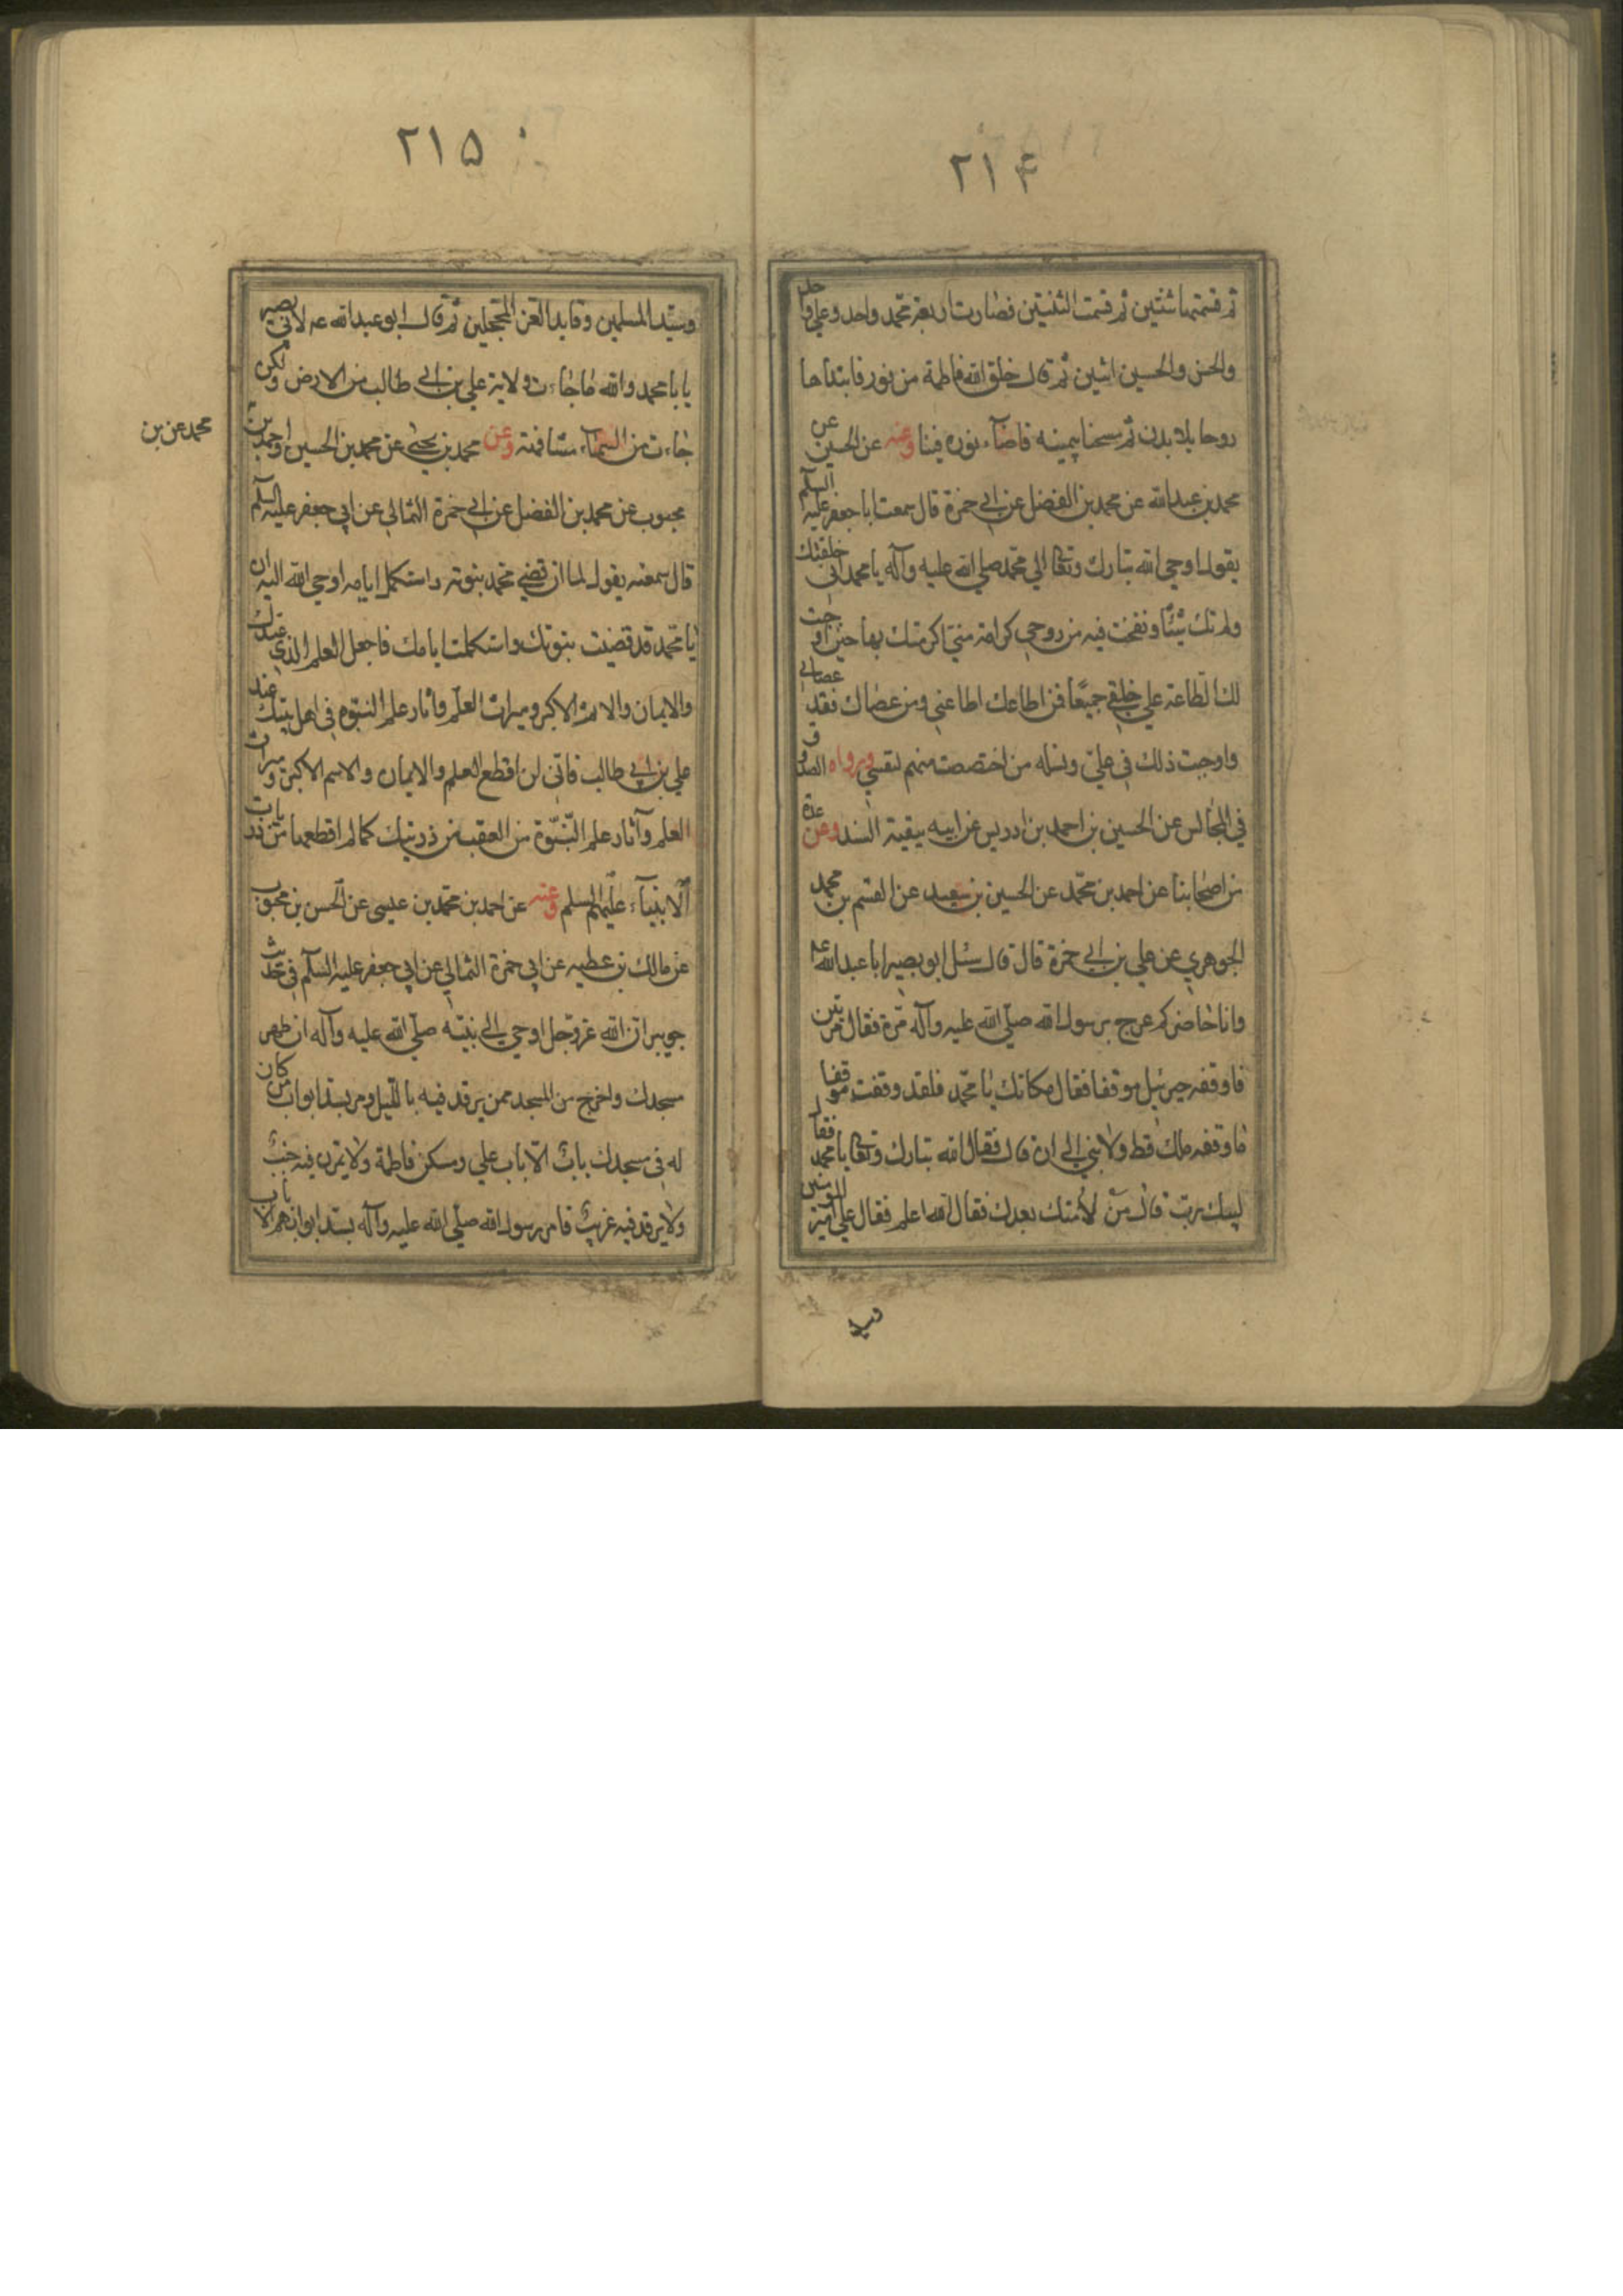 ٢١۴
ثم قسمتها ثنتين ثم قسمت الثنتين فصارت اربعة محمد واحد وعلي واحد
والحسن والحسين اثنين ثم قال خلق الله فاطمة من نور فابتداها
روحا بلا بدن ثم مسحنا بيمينه فاضآء نوره فينا وعنه عن الحسين عن
محمد بن عبد الله عن محمد بن الفضل عن ابي حمزة قال سمعت ابا جعفر عليه السلم
يقول اوحي الله تبارك وتعالي الي محمد صلي الله عليه وآله يا محمد اني خلقتك
ولم تك شيئا ونفخت فيه من روحي كرامة مني اكرمتك بها حين اوجبت
لك الطاعة علي خلقي جميعا فمن اطاعك اطاعني ومن عصاك فقد عصاني
واوجبت ذلك في علي ونسله من اختصصت منهم لنفسي ورواه الصدوق
في المجالس عن الحسين بن احمد بن ادريس عن ابيه ببقية السند وعن عدة
من اصحابنا عن احمد بن محمد عن الحسين بن سعيد عن القسم بن محمد
الجوهري عن علي بن ابي حمزة قال قال سئل ابو بصير ابا عبد الله عه
وانا حاضر كم عرج برسول الله صلي الله عليه وآله مرة فقال مرتين
فاوقفه جبرئيل موقفا فقال مكانك يا محمد فلقد وقفت موقفا
ما وقفه ملك قط ولا نبي الي ان قال فقال الله تبارك وتعالي يا محمد فقال
لبيك رب قال من لامتك بعدك فقال الله اعلم فقال علي امير المومنين
وسيد
٢١۵
وسيد المسلمين وقايد الغر المحجلين ثم قال ابو عبد الله عه لابي بصير
يا با محمد والله ما جاءت ولاية علي بن ابي طالب من الارض ولكن
جاءت من السمآء مشافهة وعن محمد بن يحيي عن محمد بن الحسين واحمد بن
محمد عن بن
محبوب عن محمد بن الفضل عن ابي حمزة الثمالي عن ابي جعفر عليه السلم
قال سمعته يقول لما ان قضي محمد نبوته واستكمل ايامه اوحي الله اليه ان
يا محمد قد قضيت نبوتك واستكملت ايامك فاجعل العلم الذي عندك
والايمان والاسم الاكبر وميراث العلم وآثار علم النبوة في اهل بيتك عند
علي بن ابي طالب فاني لن اقطع العلم والايمان والاسم الاكبر وميراث
العلم وآثار علم النبوة من العقب من ذريتك كما لم اقطعها من ذريات
الانبيآء عليهم السلم وعنه عن احمد بن محمد بن عيسي عن الحسن بن محبوب
عن مالك بن عطيه عن ابي حمزة الثمالي عن ابي جعفر عليه السلم في حديث
جويبر ان الله عز وجل اوحي الي نبيه صلي الله عليه وآله ان طهر
مسجدك واخرج من المسجد ممن يرقد فيه بالليل ومر بسد ابواب من كان
له في مسجدك باب الا باب علي ومسكن فاطمة ولا يمرن فيه جنب
ولا يرقد فيه غريب فامر رسول الله صلي الله عليه وآله بسد ابوابهم الا باب